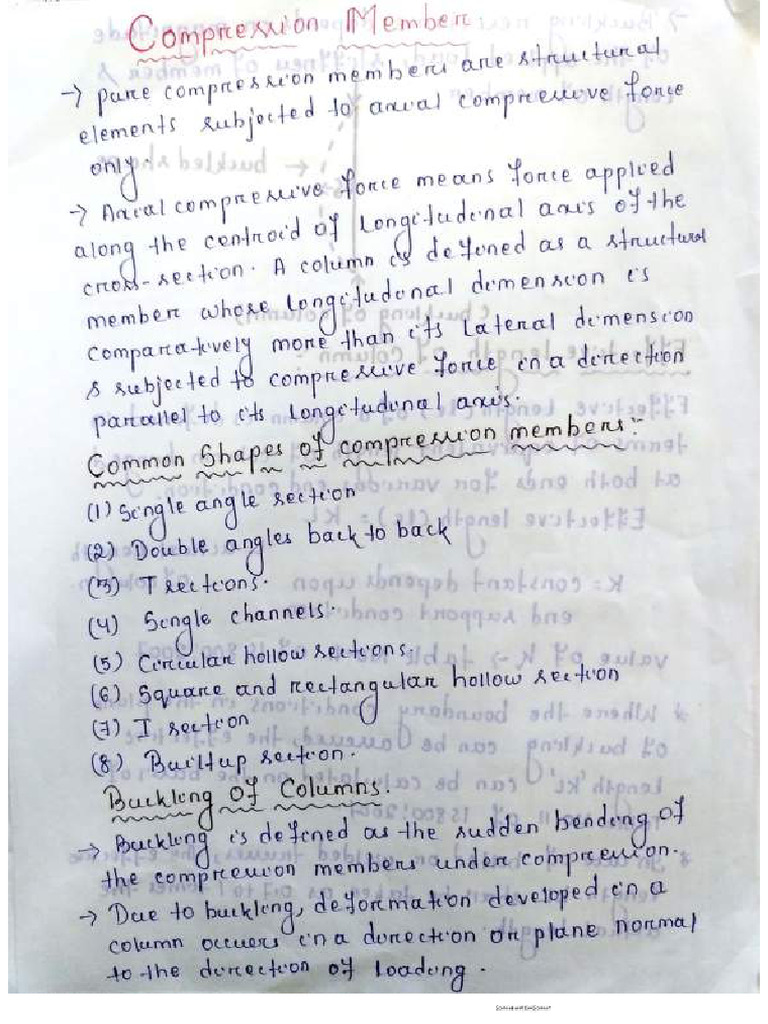 Compression Member
→ pure compression members are structural
elements subjected to axial compressive force
only.
→ Axial compressive force means force applied
along the centroid of longitudinal axis of the
cross-section. A column is defined as a structural
member whose longitudinal dimension is
comparatively more than its lateral dimension
& subjected to compressive force in a direction
parallel to its longitudinal axis.
Common Shapes of compression members:-
(1) Single angle section
(2) Double angles back to back
(3) T sections.
(4) Single channels.
(5) Circular hollow sections.
(6) Square and rectangular hollow section
(7) I section
(8) Built up section.
Buckling Of Columns.
→ Buckling is defined as the sudden bending of
the compression members under compression.
→ Due to buckling, deformation developed in a
column occurs in a direction or plane normal
to the direction of loading.